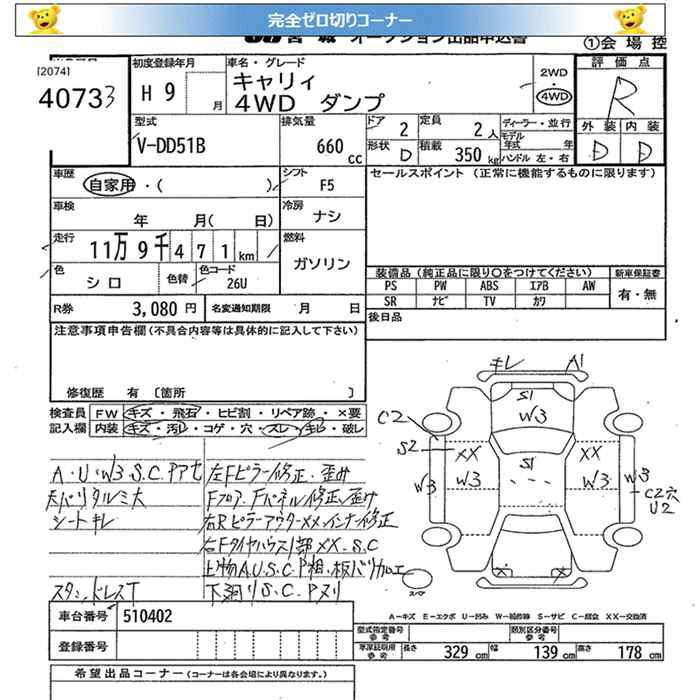 完全ゼロ切りコーナー
宮城 オークション出品申込書
①会場控
[2074]
初度登録年月 車名・グレード 評価点
40733 H9 月 キャリィ 2WD R
4WD ダンプ 4WD
型式 排気量 ドア 2 定員 2人 ディーラー・並行 外装 内装
V-DD51B 660cc 形状 D 積載 350kg モデル年式 年 D D
ハンドル 左・右
車歴 シフト セールスポイント (正常に機能するものに限ります)
自家用・( ) F5
車検 冷房
年 月( 日) ナシ
走行 燃料
11万9千471km ガソリン
色 色替 色コード
シロ 26U
装備品(純正品に限り○をつけてください) 新車保証書
PS PW ABS エアB AW 有・無
SR ナビ TV カワ
R券 3,080円 名変通知期限 月 日 後日品
注意事項申告欄(不具合内容等は具体的に記入して下さい)
修復歴 有 〔箇所 〕
検査員 FW キズ・飛石・ヒビ割・リペア跡・×要
記入欄 内装 キズ・汚レ・コゲ・穴・スレ・キレ・破レ
キレ A1
S1
W3
C2
S2 XX S1 XX
W3 W3 W3 W3
C2穴
U2
A・U・W3 S.C.Pアセ 左Fピラー修正・歪み
天バリタルミ大 Fフロア、Fパネル修正、歪み
シートキレ 右RピラーアウターXX、インナー修正
右Fタイヤハウス1部XX、S.C
上物A.U.S.C.P相、板バリカエロ
スタッドレスT 下廻りS.C.Pヌリ
スペア
A=キズ E=エクボ U=凹み W=補修跡 S=サビ C=腐食 XX=交換済
車台番号 510402
登録番号
型式指定番号 参考 類別区分番号 参考
車庫証明用 参考 長さ 329cm 幅 139cm 高さ 178cm
希望出品コーナー(コーナーは各会場により異なります。)